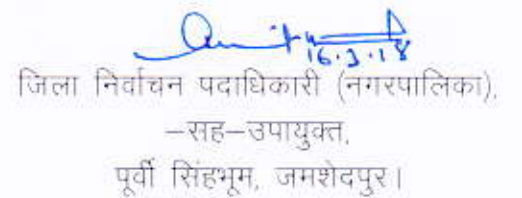 16.3.18
जिला निर्वाचन पदाधिकारी (नगरपालिका),
–सह–उपायुक्त,
पूर्वी सिंहभूम, जमशेदपुर।